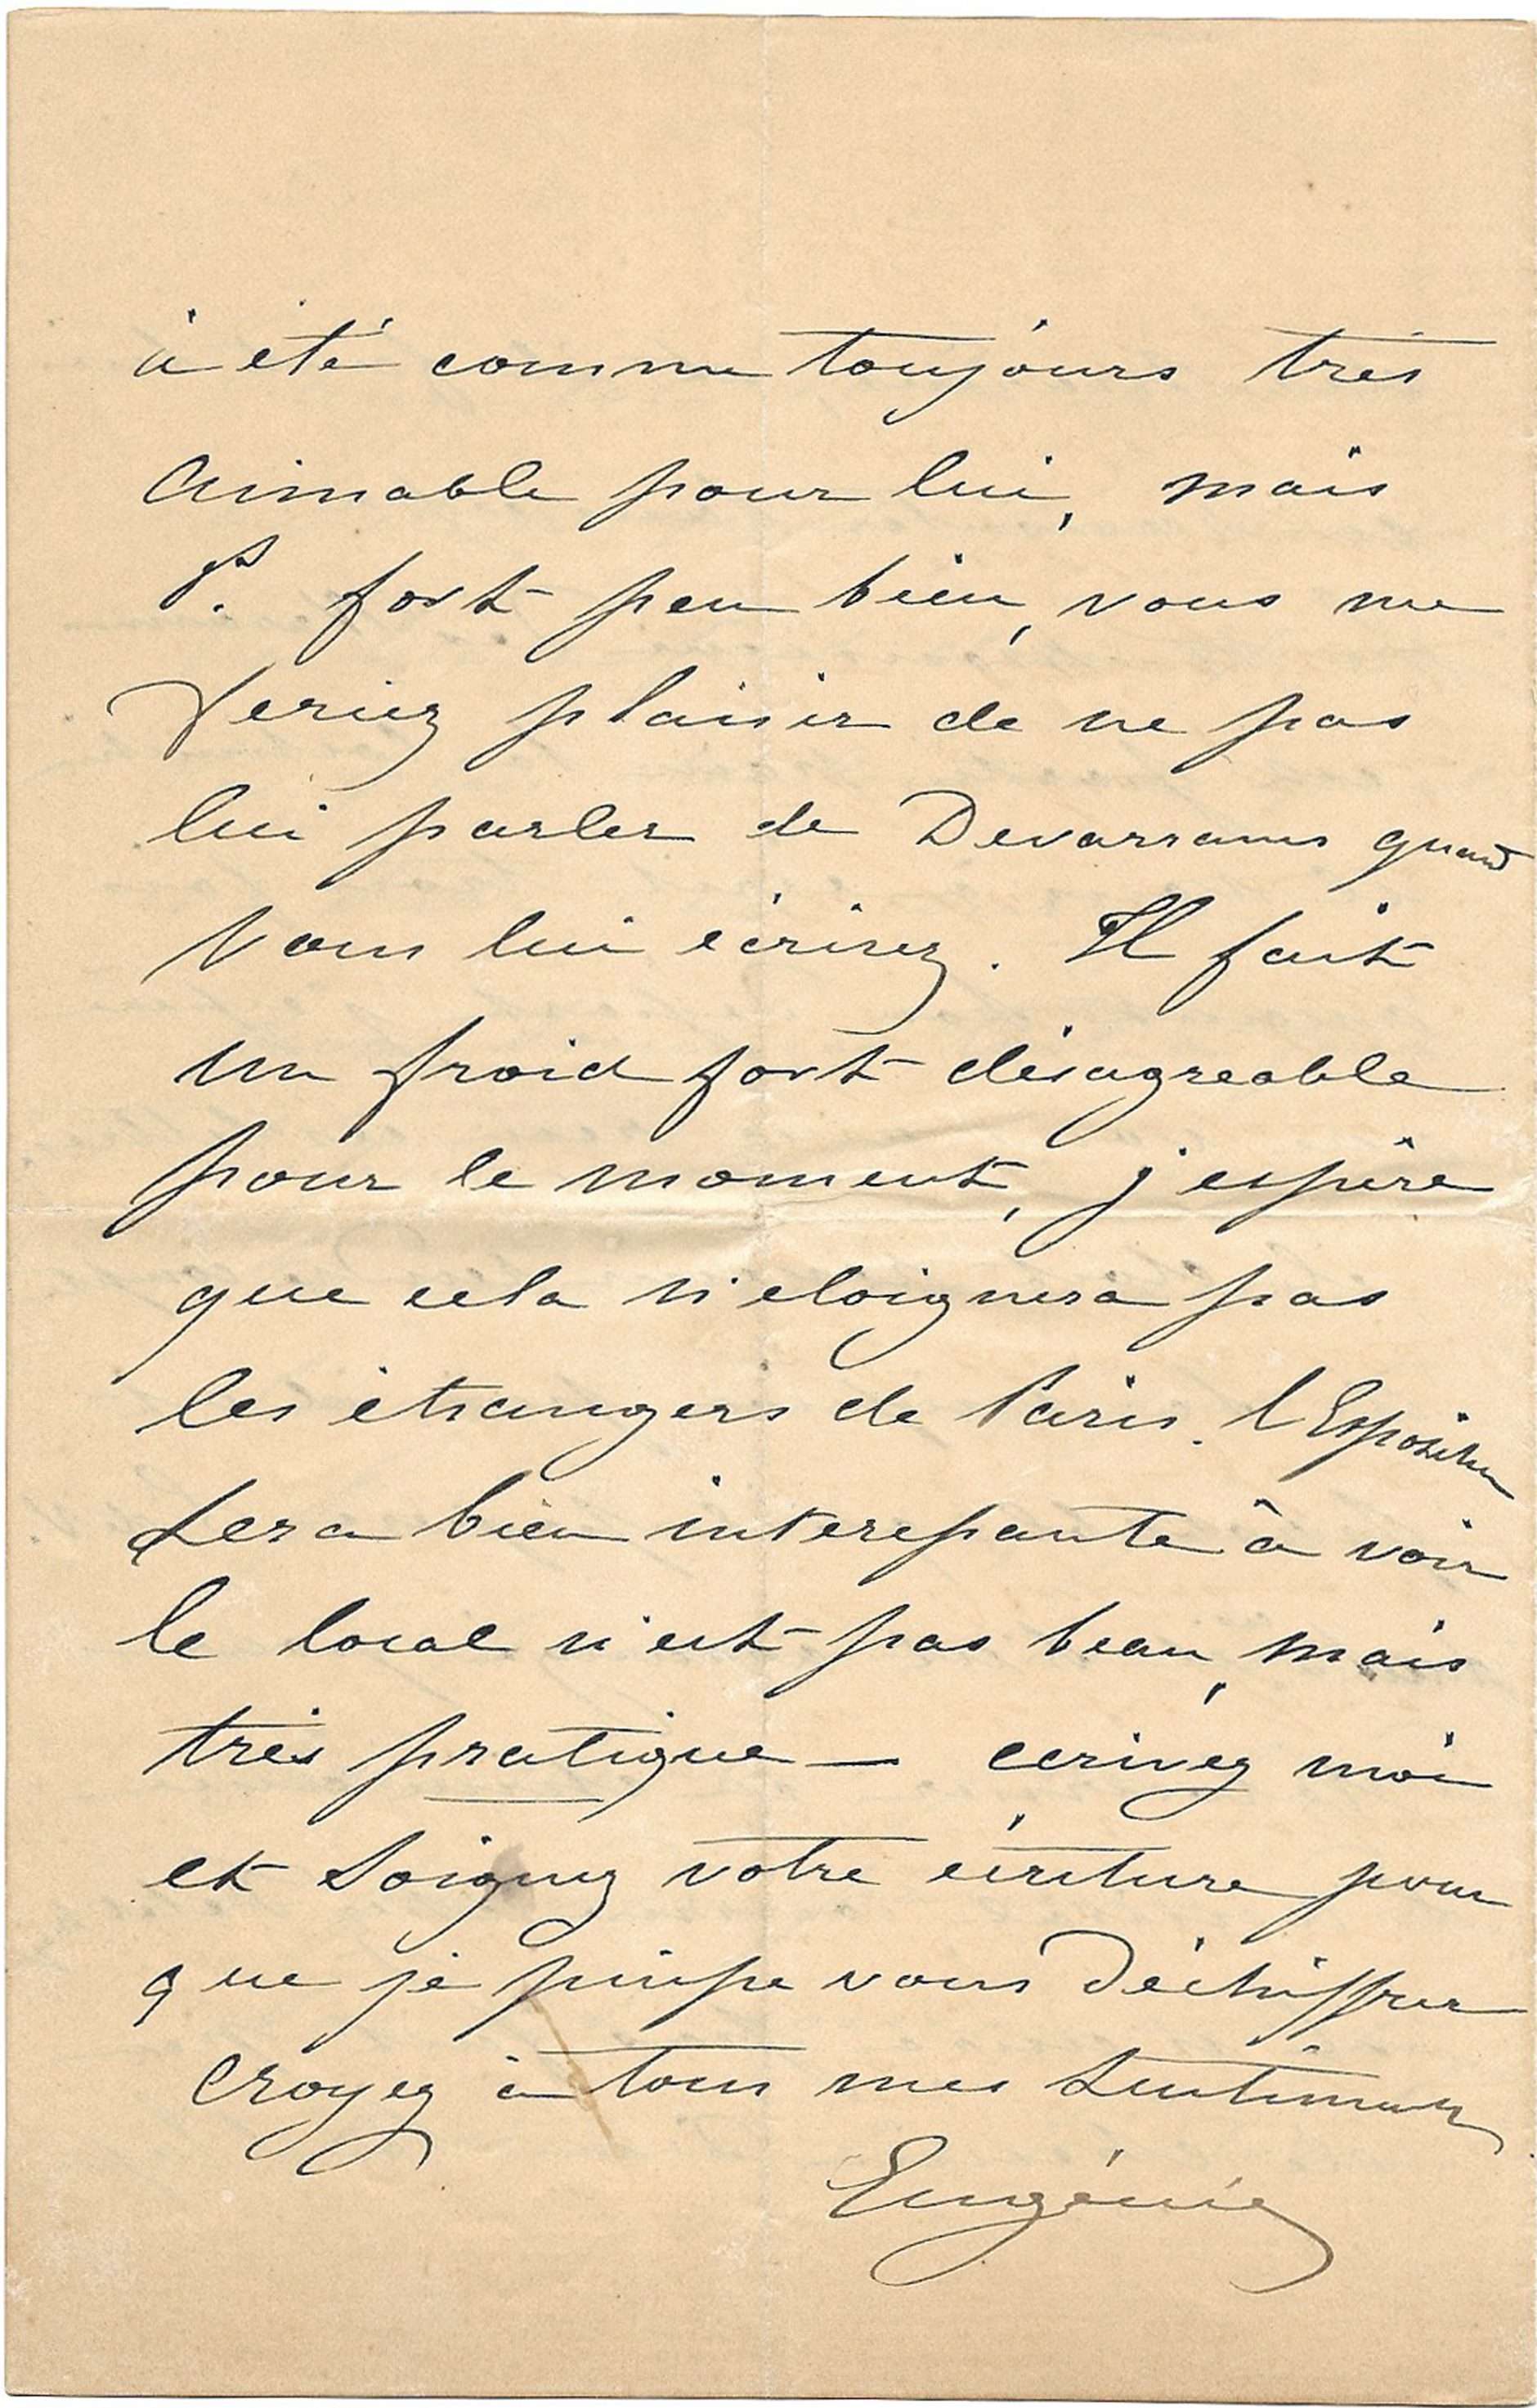 a été comme toujours très
aimable pour lui, mais
P. fort peu bien, vous me
feriez plaisir de ne pas
lui parler de Devarrans quand
vous lui écrirez. Il fait
un froid fort désagreable
pour le moment, j'espère
que cela n'eloignera pas
les étrangers de Paris. l'Exposition
sera bien interessante à voir
le local n'est pas beau, mais
très pratique — ecrivez moi
et soignez votre écriture pour
que je puisse vous déchiffrer
croyez à tous mes sentiments
Eugénie